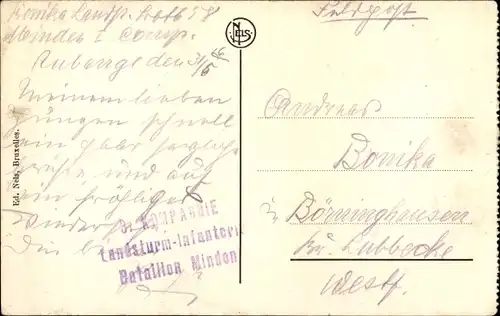 Feldpost
Bonika Landst. Batl
Minden I Comp.
NELS
Aubange den 31/5 16
Meinem lieben
Jungen schnell
ein paar herzliche
Grüße und auf
ein fröhliges
Wiedersehen
Ed. Nels, Bruxelles.
3. KOMPAGNIE
Landsturm-Infanterie
Bataillon Minden
Andreas
Bonika
in Börninghausen
Kr. Lübbecke
Westf.